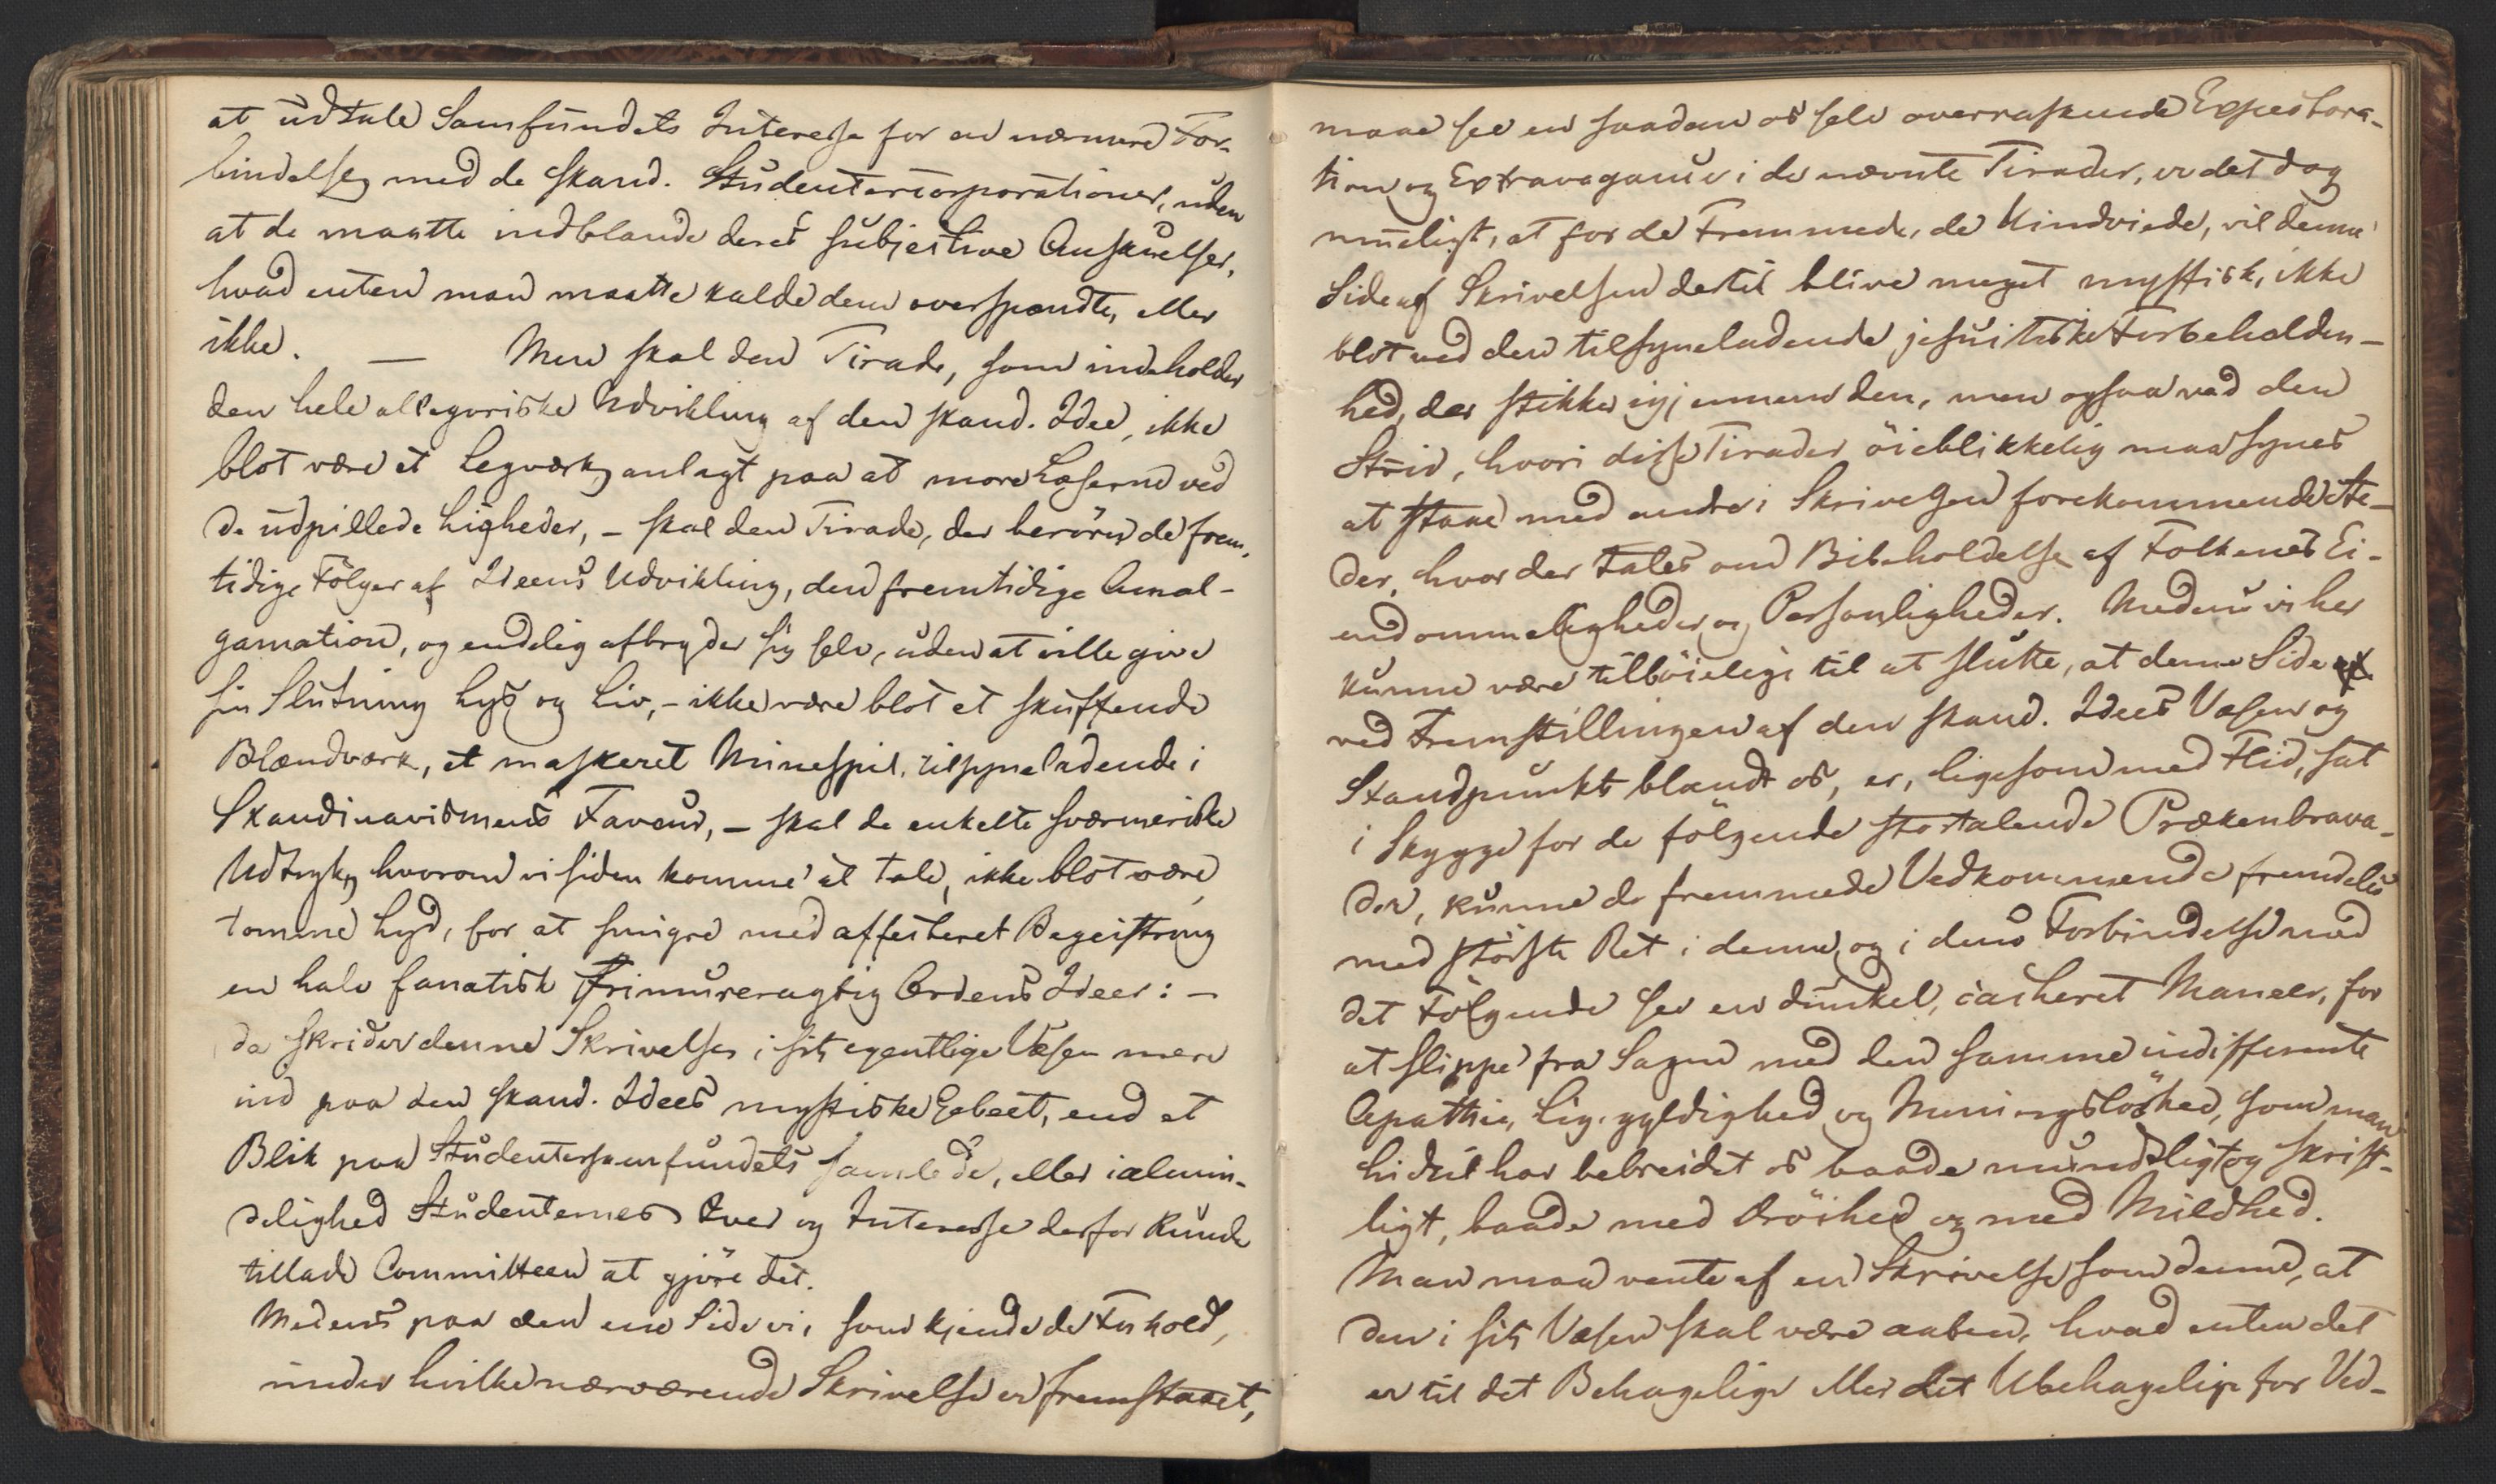 at udtale Samfundets Interesse for en nærmere For-
bindelse med de skand. Studentercorporationer, uden
at de maatte indblande deres subjective Anskuelser,
hvad enten man maatte kalde dem overspændte, eller
ikke. — Men skal den Tirade, som indeholder
den hele allegoriske Udvikling af den skand. Idee, ikke
blot være et Legværk, anlagt paa at more Læserne ved
de udpillede Ligheder, – skal den Tirade, der berörer de frem-
tidige Fölger af Ideens Udvikling, den fremtidige Amal-
gamation, og endelig afbryder sig selv, uden at ville give
sin Slutning Lys og Liv, – ikke være blot et skuffende
Blændværk, et maskeret Minespil, tilsyneladende i
Skandinavismens Faveur, – skal de enkelte sværmeriske
Udtryk, hvorom vi siden komme at tale, ikke blot være
tomme Lyd, for at smigre med affecteret Begeistring
en halv fanatisk frimureragtig Ordens Ideer: –
da skrider denne Skrivelse i sit egentlige Væsen mere
ind paa den skand. Idees mystiske Gebeet, end et
Blik paa Studentersamfundets samlede, eller i almin-
delighed Studenternes Iver og Interesse derfor kunde
tillade Committeen at gjöre det.
Medens paa den ene Side vi, som kjende de Forhold,
under hvilke nærværende Skrivelse er fremstaaet,
maae see en saadan os selv overraskende Expectora-
tion og Extravagance i de nævnte Tirader, er det dog
mueligt, at for de Fremmede, de Uindviede, vil denne
Side af Skrivelsen dertil blive meget mystisk, ikke
blot ved den tilsyneladende jesuitiske Forbeholden-
hed, der stikker igjennem den, men ogsaa ved den
Strid, hvori disse Tirader öieblikkelig maa synes
at staae med andre i Skrivelsen forekommende Ste-
der, hvor der tales om Bibeholdelse af Folkenes Ei-
endommeligheder og Personligheder. Medens vi her
kunne være tilböielige til at slutte, at denne Side
ved Fremstillingen af den skand. Idees Væsen og
Standpunkt blandt os, er, ligesom med Flid, sat
i Skygge for de fölgende stortalende Prækenbrava-
der, kunne de fremmede Vedkommende fremdeles
med störste Ret i denne og i dens Forbindelse med
det Fölgende see en dunkel, cacheret Maneer, for
at slippe fra Sagen med den samme indifferente
Apathie, Ligegyldighed og Meningslöshed, som man
hidtil har bebreidet os baade mundtligt og skrift-
ligt, baade med Dröihed og med Mildhed.
Man maa vente af en Skrivelse som denne, at
den i sit Væsen skal være aaben, hvad enten det
er til det Behagelige eller det Ubehagelige for Ved-